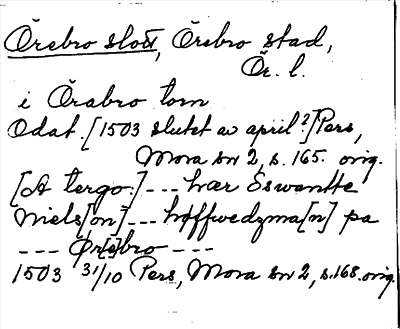 Örebro slott, Örebro stad,
Ör. l.
i Örabro torn
Odat. [1503 slutet av april?] Pers,
Mora sn 2, s. 165. orig.
[A tergo:] --- hær Eswantte
Niels[on] --- høffwedzma[n] pa
--- Ør[e]bro ---
1503 31/10 Pers, Mora sn 2, s. 168. orig.